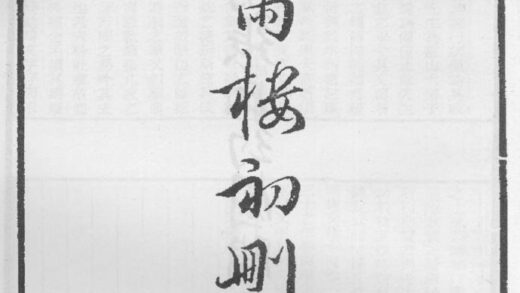 雨樓初刪